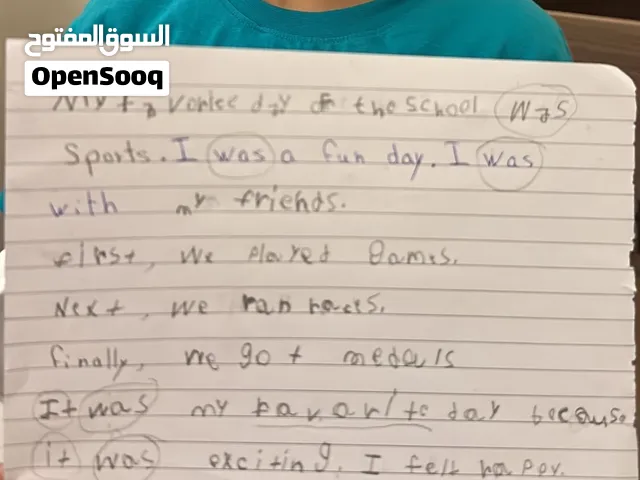 السوق المفتوح
OpenSooq
My favorlee day of the school was
Sports. I was a fun day. I was
with my friends.
first, we Played Games.
Next, we ran races.
finally, we got medals
It was my favarite day because
it was exciting. I felt happy.